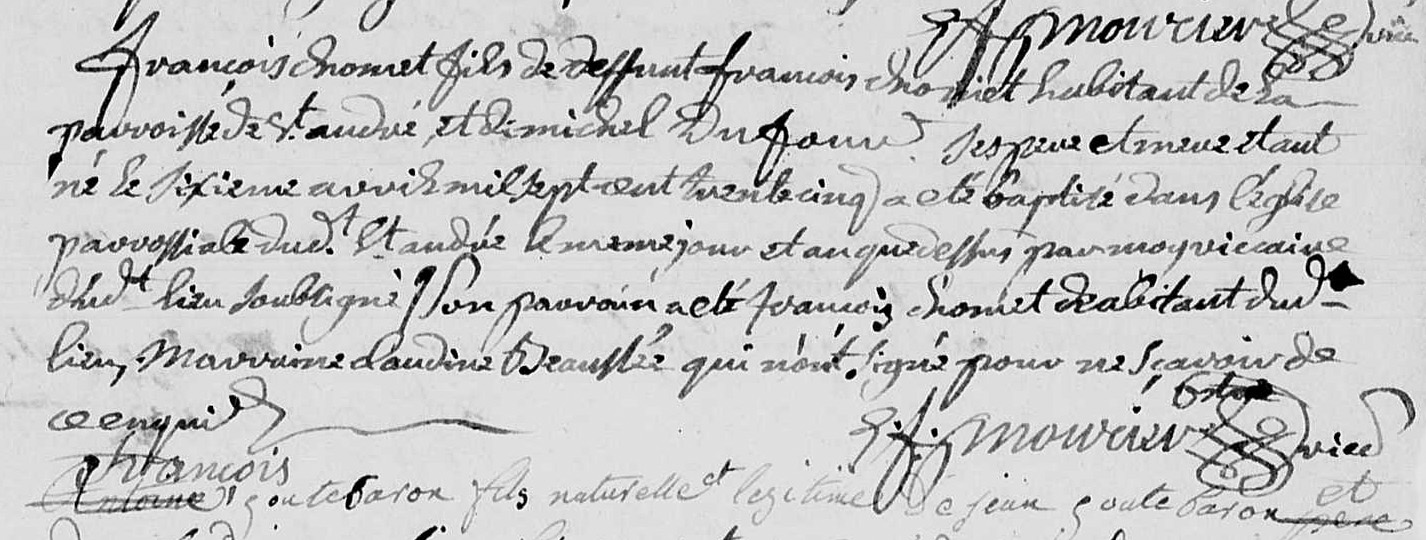 Mourier vic
françois chomet fils de deffunt francois chomet habitant de la
parroisse de St andré, et di michel Du four ses pere et mere etant
né le sixieme avril mil sept cent trente cinq a eté baptisé dans l'eglise
parrossiale dud.t St andré le meme jour et an que dessus par moy viccaire
dud.t lieu soubsigné son parrain a eté francois chomet deabitant dud
lieu, Marraine claudine qui n'ont signé pour ne sçavoir de
ce enquid
Mourier vicc
francois
antoine goutebaron fils naturelle et legitime de jean goutebaron et